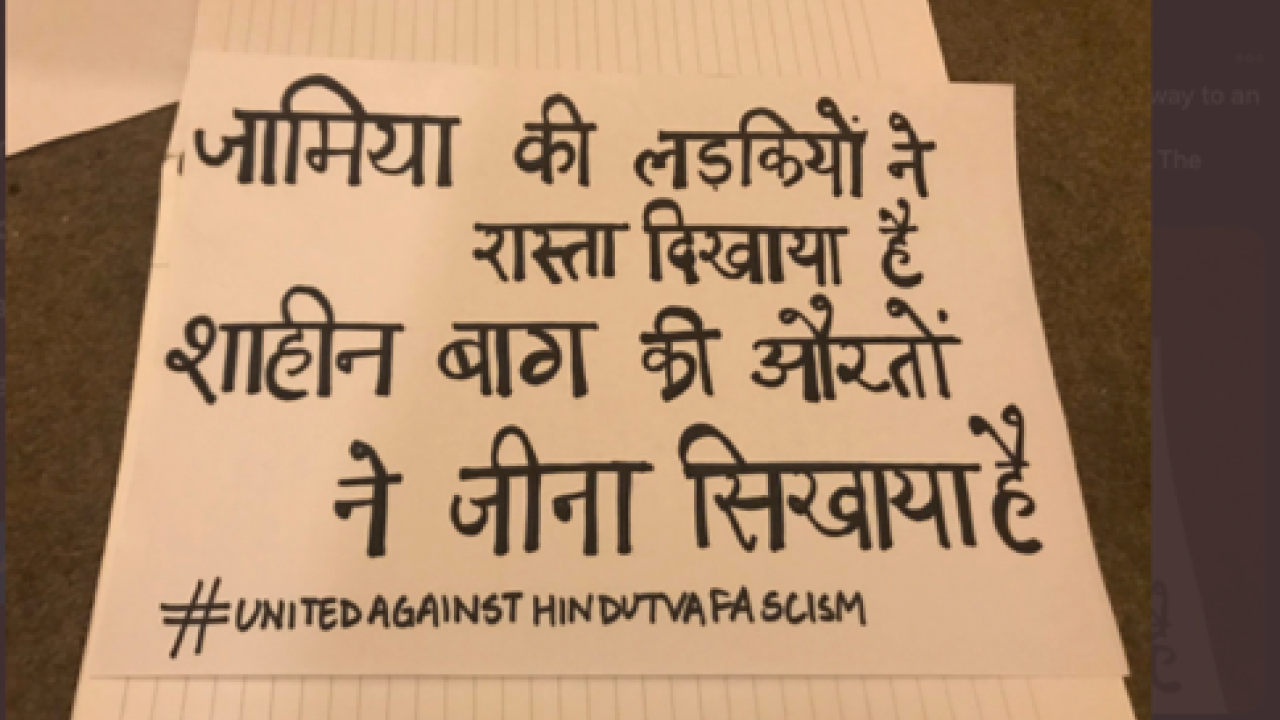 जामिया की लड़कियों ने
रास्ता दिखाया है
शाहीन बाग की औरतों
ने जीना सिखाया है
#UNITEDAGAINSTHINDUTVAFASCISM
way to an
The